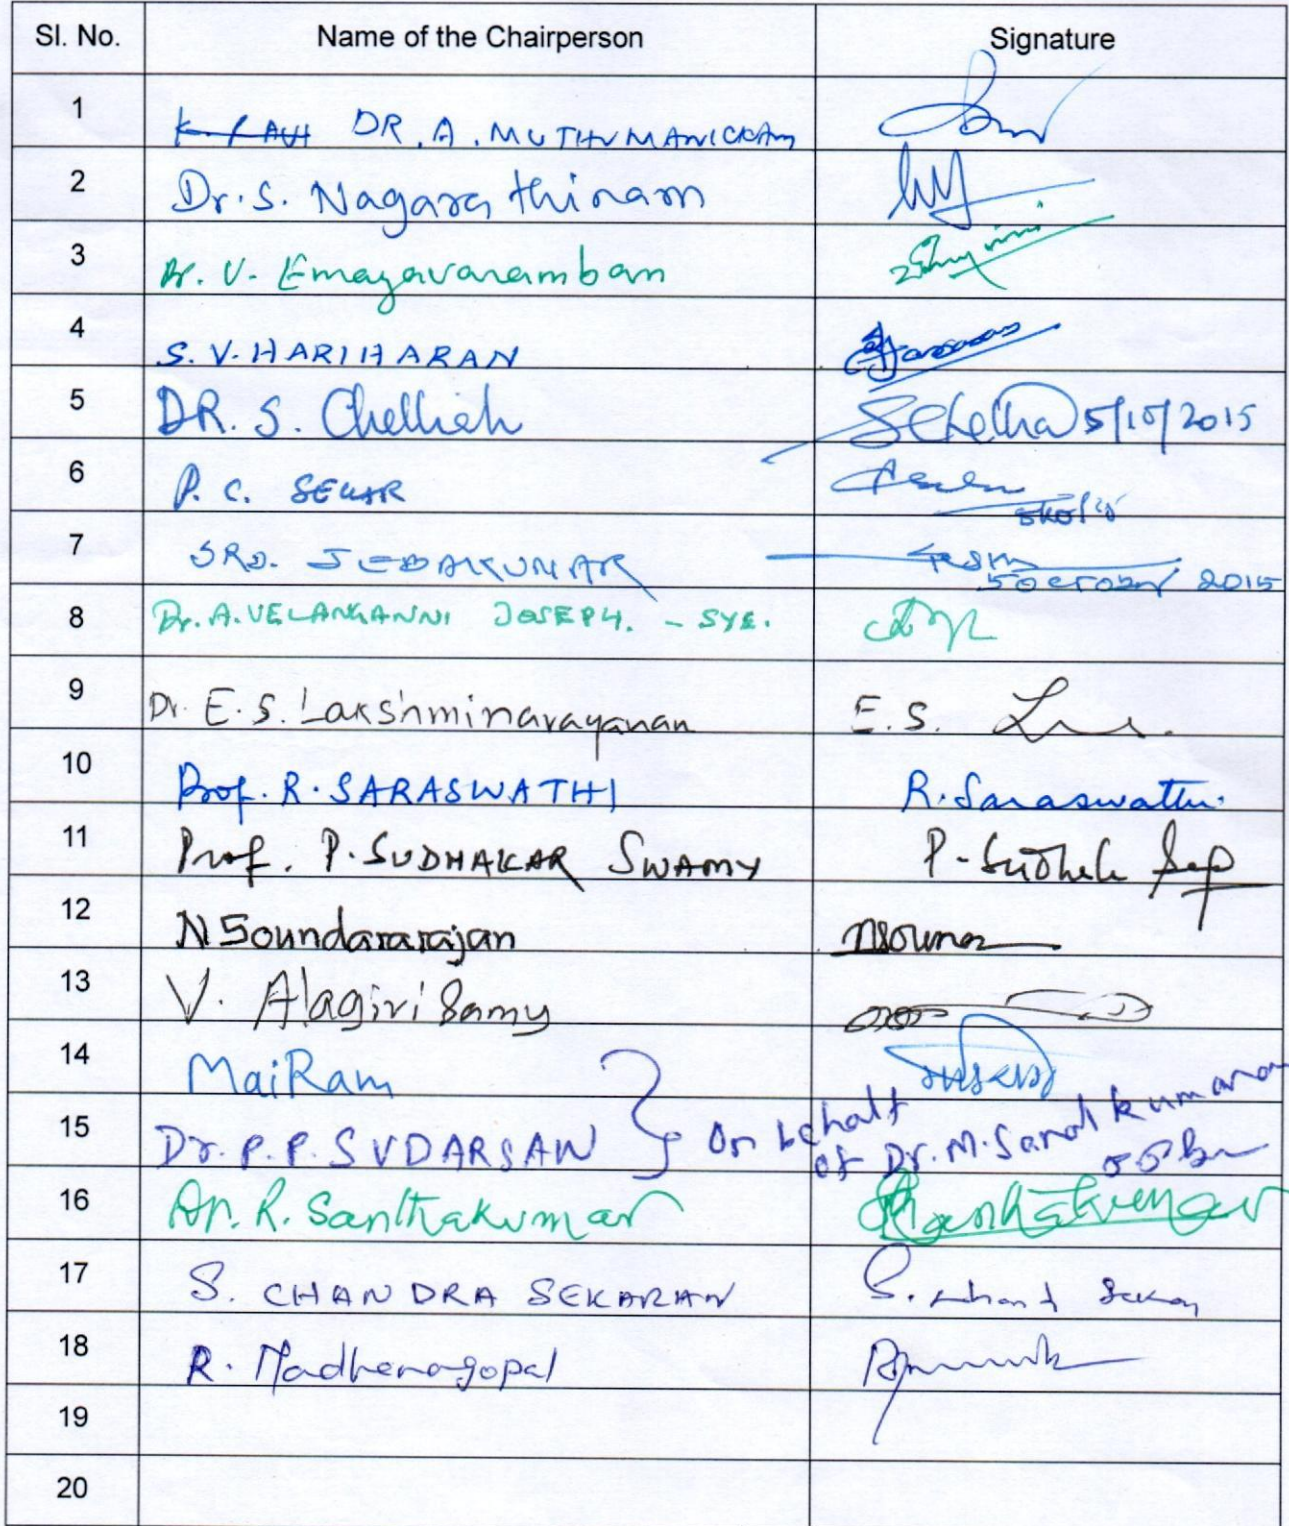 Sl. No. Name of the Chairperson Signature
1 DR. A. MUTHUMANICKAM
2 Dr. S. Nagarathinam
3 Dr. V. Emayavaramban
4 S. V. HARIHARAN
5 DR. S. Chelliah SChellia 5/10/2015
6 P. C. SEKAR
7 SRD. JEBAKUMAR 5 OCTOBER 2015
8 Dr. A. VELANKANNI JOSEPH. - SYE.
9 Dr. E. S. Lakshminarayanan E. S.
10 Prof. R. SARASWATHI R. Saraswathi.
11 Prof. P. SUDHAKAR SWAMY
12 N Soundararajan
13 V. Alagiri Samy
14 MaiRam
15 Dr. P. P. SUDARSAN } On behalf
of Dr. M.
16 Dr. R. Santhakumar Santhakumar
17 S. CHANDRA SEKARAN
18 R. Madhanagopal
19
20